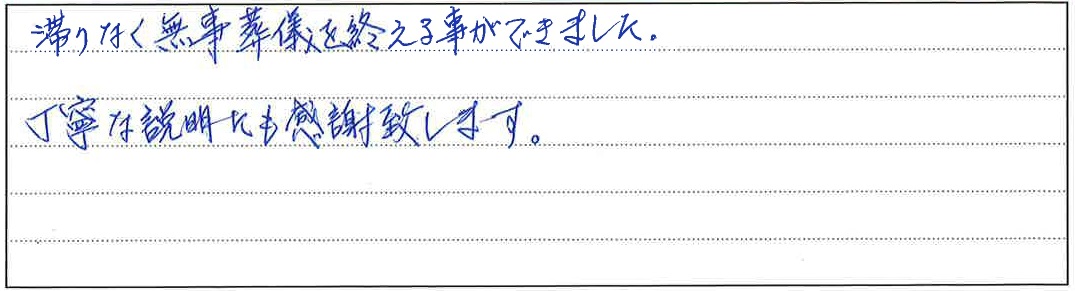 滞りなく無事葬儀を終える事ができました。
丁寧な説明にも感謝致します。